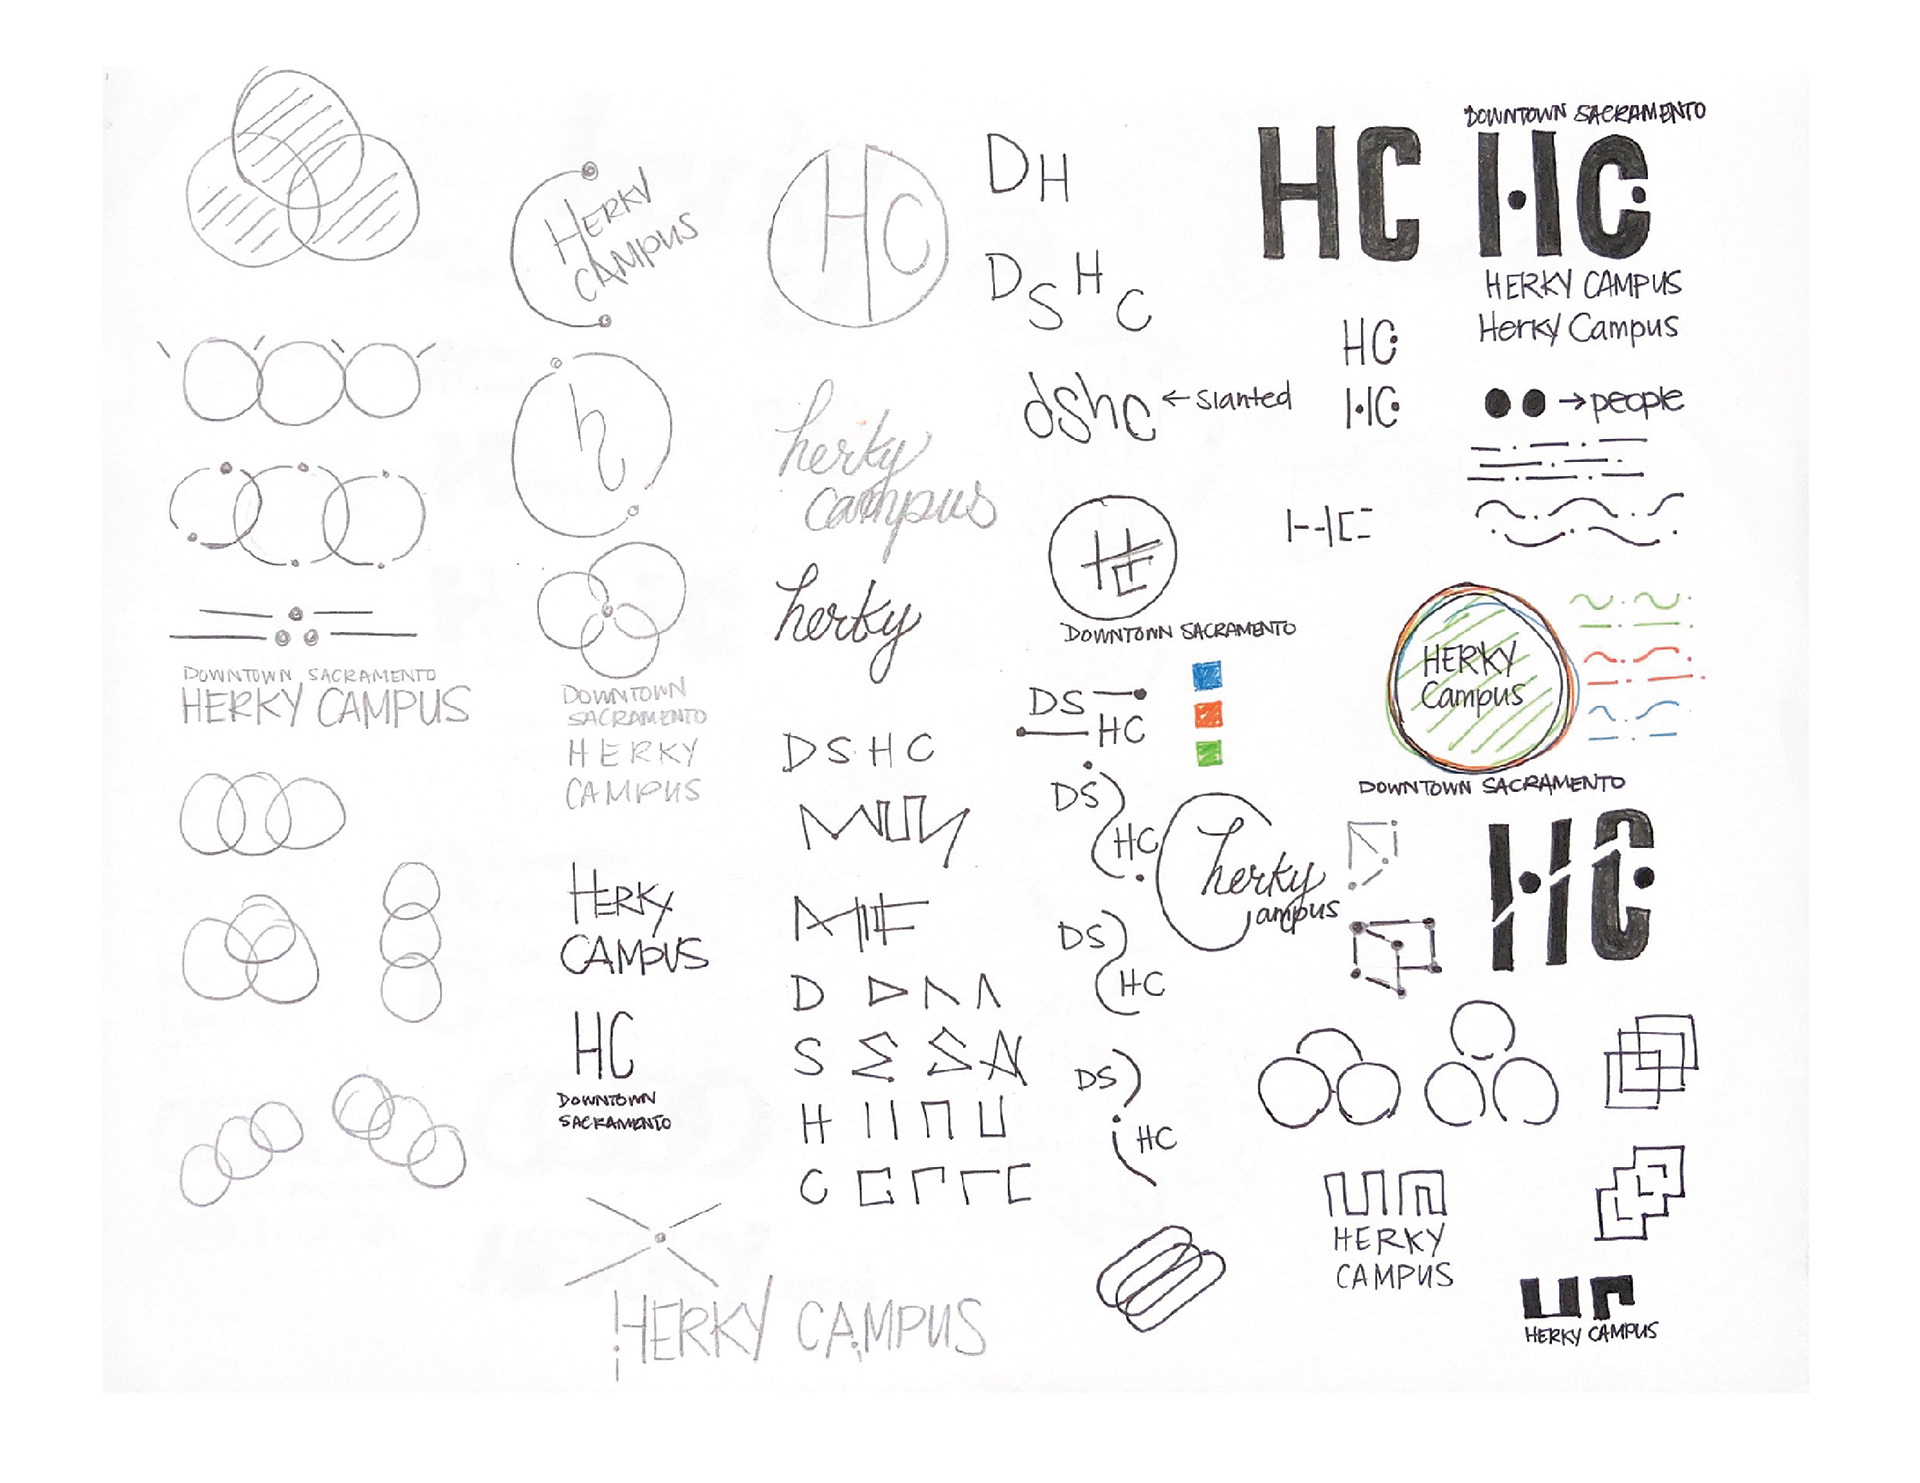 HERKY
CAMPUS
HC
DH
DSHC
HC
DOWNTOWN SACRAMENTO
HC
HERKY CAMPUS
Herky Campus
h
herky
campus
dshc ← slanted
HC
HC
→ people
HC
DOWNTOWN SACRAMENTO
HC
herky
HERKY
Campus
DOWNTOWN SACRAMENTO
DOWNTOWN SACRAMENTO
HERKY CAMPUS
DOWNTOWN
SACRAMENTO
HERKY
CAMPUS
DSHC
DS
HC
DS
HC
herky
ampus
HC
HERKY
CAMPUS
DS
HC
HC
DOWNTOWN
SACRAMENTO
D
S
H
C
DS
HC
HERKY
CAMPUS
HERKY CAMPUS
HERKY CAMPUS